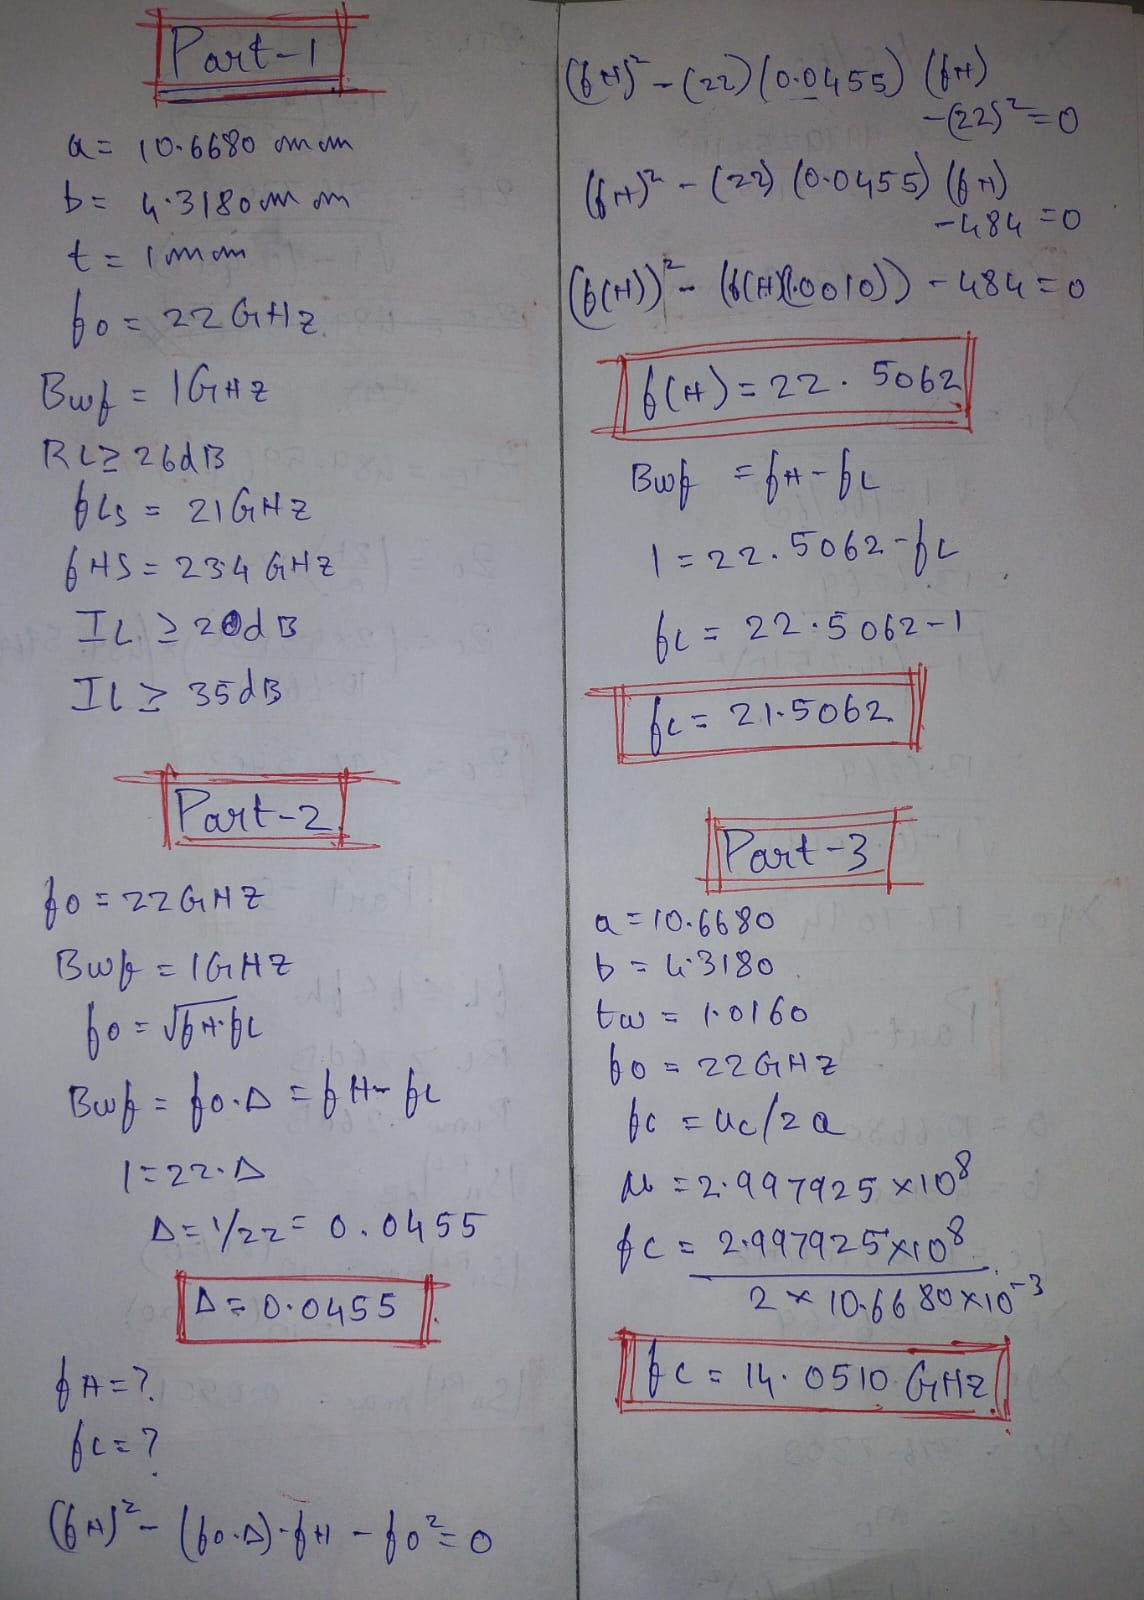 Part-1
a = 10.6680 mm
b = 4.3180 mm
t = 1 mm
fo = 22 GHz
Bwf = 1 GHz
RL ≥ 26dB
fLs = 21 GHz
fHS = 23.4 GHz
IL ≥ 20dB
IL ≥ 35dB
Part-2
fo = 22 GHZ
Bwf = 1GHZ
fo = √fH.fL
Bwf = fo.Δ = fH - fL
1 = 22.Δ
Δ = 1/22 = 0.0455
Δ = 0.0455
fH = ?
fL = ?
(fH)² - (fo.Δ).fH - fo² = 0
(fH)² - (22)(0.0455)(fH)
-(22)² = 0
(fH)² - (22)(0.0455)(fH)
-484 = 0
(f(H))² - (f(H)(1.0010)) - 484 = 0
f(H) = 22.5062
Bwf = fH - fL
1 = 22.5062 - fL
fL = 22.5062 - 1
fL = 21.5062
Part-3
a = 10.6680
b = 4.3180
tw = 1.0160
fo = 22GHZ
fc = uc/2a
= 2.997925 × 10⁸
fc = 2.997925 × 10⁸
2 × 10.6680 × 10⁻³
fc = 14.0510 GHz